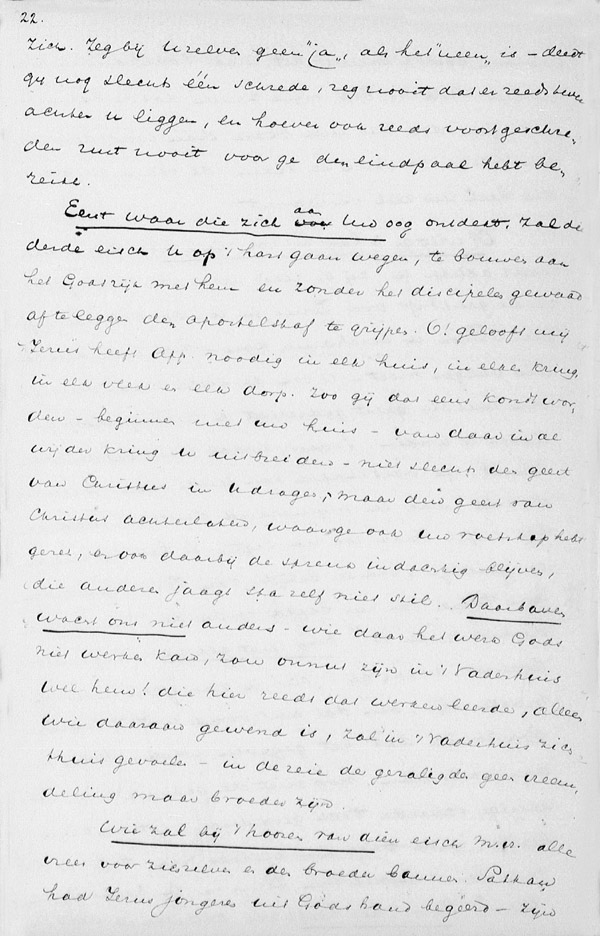 22.
zich. Zeg bij Uzelven geen "ja", als het "neen" is – deedt
gij nog slechts één schrede, zeg nooit dat er reeds
achter U liggen, en hoever ook reeds voortgeschre-
den rust nooit voor ge den eindpaal hebt be-
reikt.
Eerst waar die zich aan Uw oog ontdekt, zal de
derde eisch U op 't hart gaan wegen, te bouwen aan
het Godsrijk met hem en zonder het discipelen gewaad
af te leggen den apostelstaf te grijpen. O! gelooft mij
Jezus heeft App. noodig in elk huis, in elken kring,
in elk vlek en elk dorp. Zoo gij dat eens kondt wor-
den – beginnen met uw huis – van daar in de
wijder kring U uitbreiden – niet slechts den geest
van Christus in U dragen, maar dien geest van
Christus achterlaten, waar ge ook uw voetstap hebt
gezet, en ook daarbij de spreuk indachtig blijven,
die anderen jaagt sta zelf niet stil. Daarboven
wacht ons niet anders – wie daar het werk Gods
niet werken kan, zou onnut zijn in 't Vaderhuis
wel hem! die hier reeds dat werken leerde, alleen
wie daaraan gewend is, zal in 't Vaderhuis zich
thuis gevoelen – in de reie der gezaligden geen vreem-
deling maar broeder zijn.
Wie zal bij 't hooren van dien eisch m.v. alle
vrees voor zichzelven en den broeder bannen. Sathan
had Jezus jongeren uit Gods hand begeerd – zijn